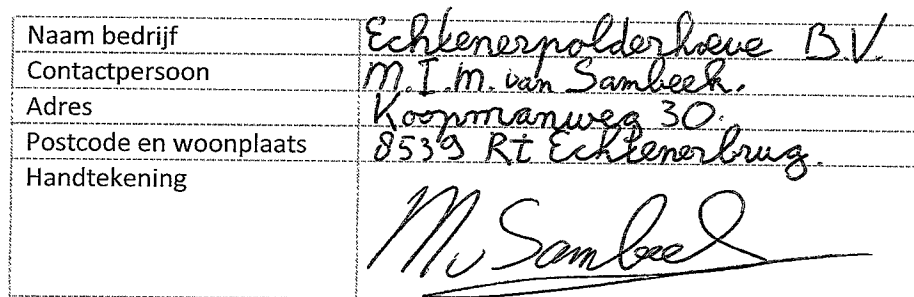 Naam bedrijf Echtenerpolderhoeve B.V.
Contactpersoon M.I.M. van Sambeek.
Adres Koopmanweg 30.
Postcode en woonplaats 8539 Rt Echtenerbrug.
Handtekening M v Sambeek